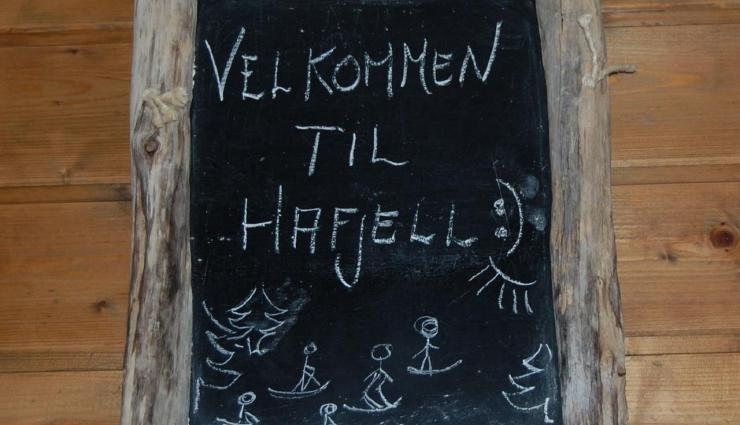 VELKOMMEN
TIL
HAFJELL :)